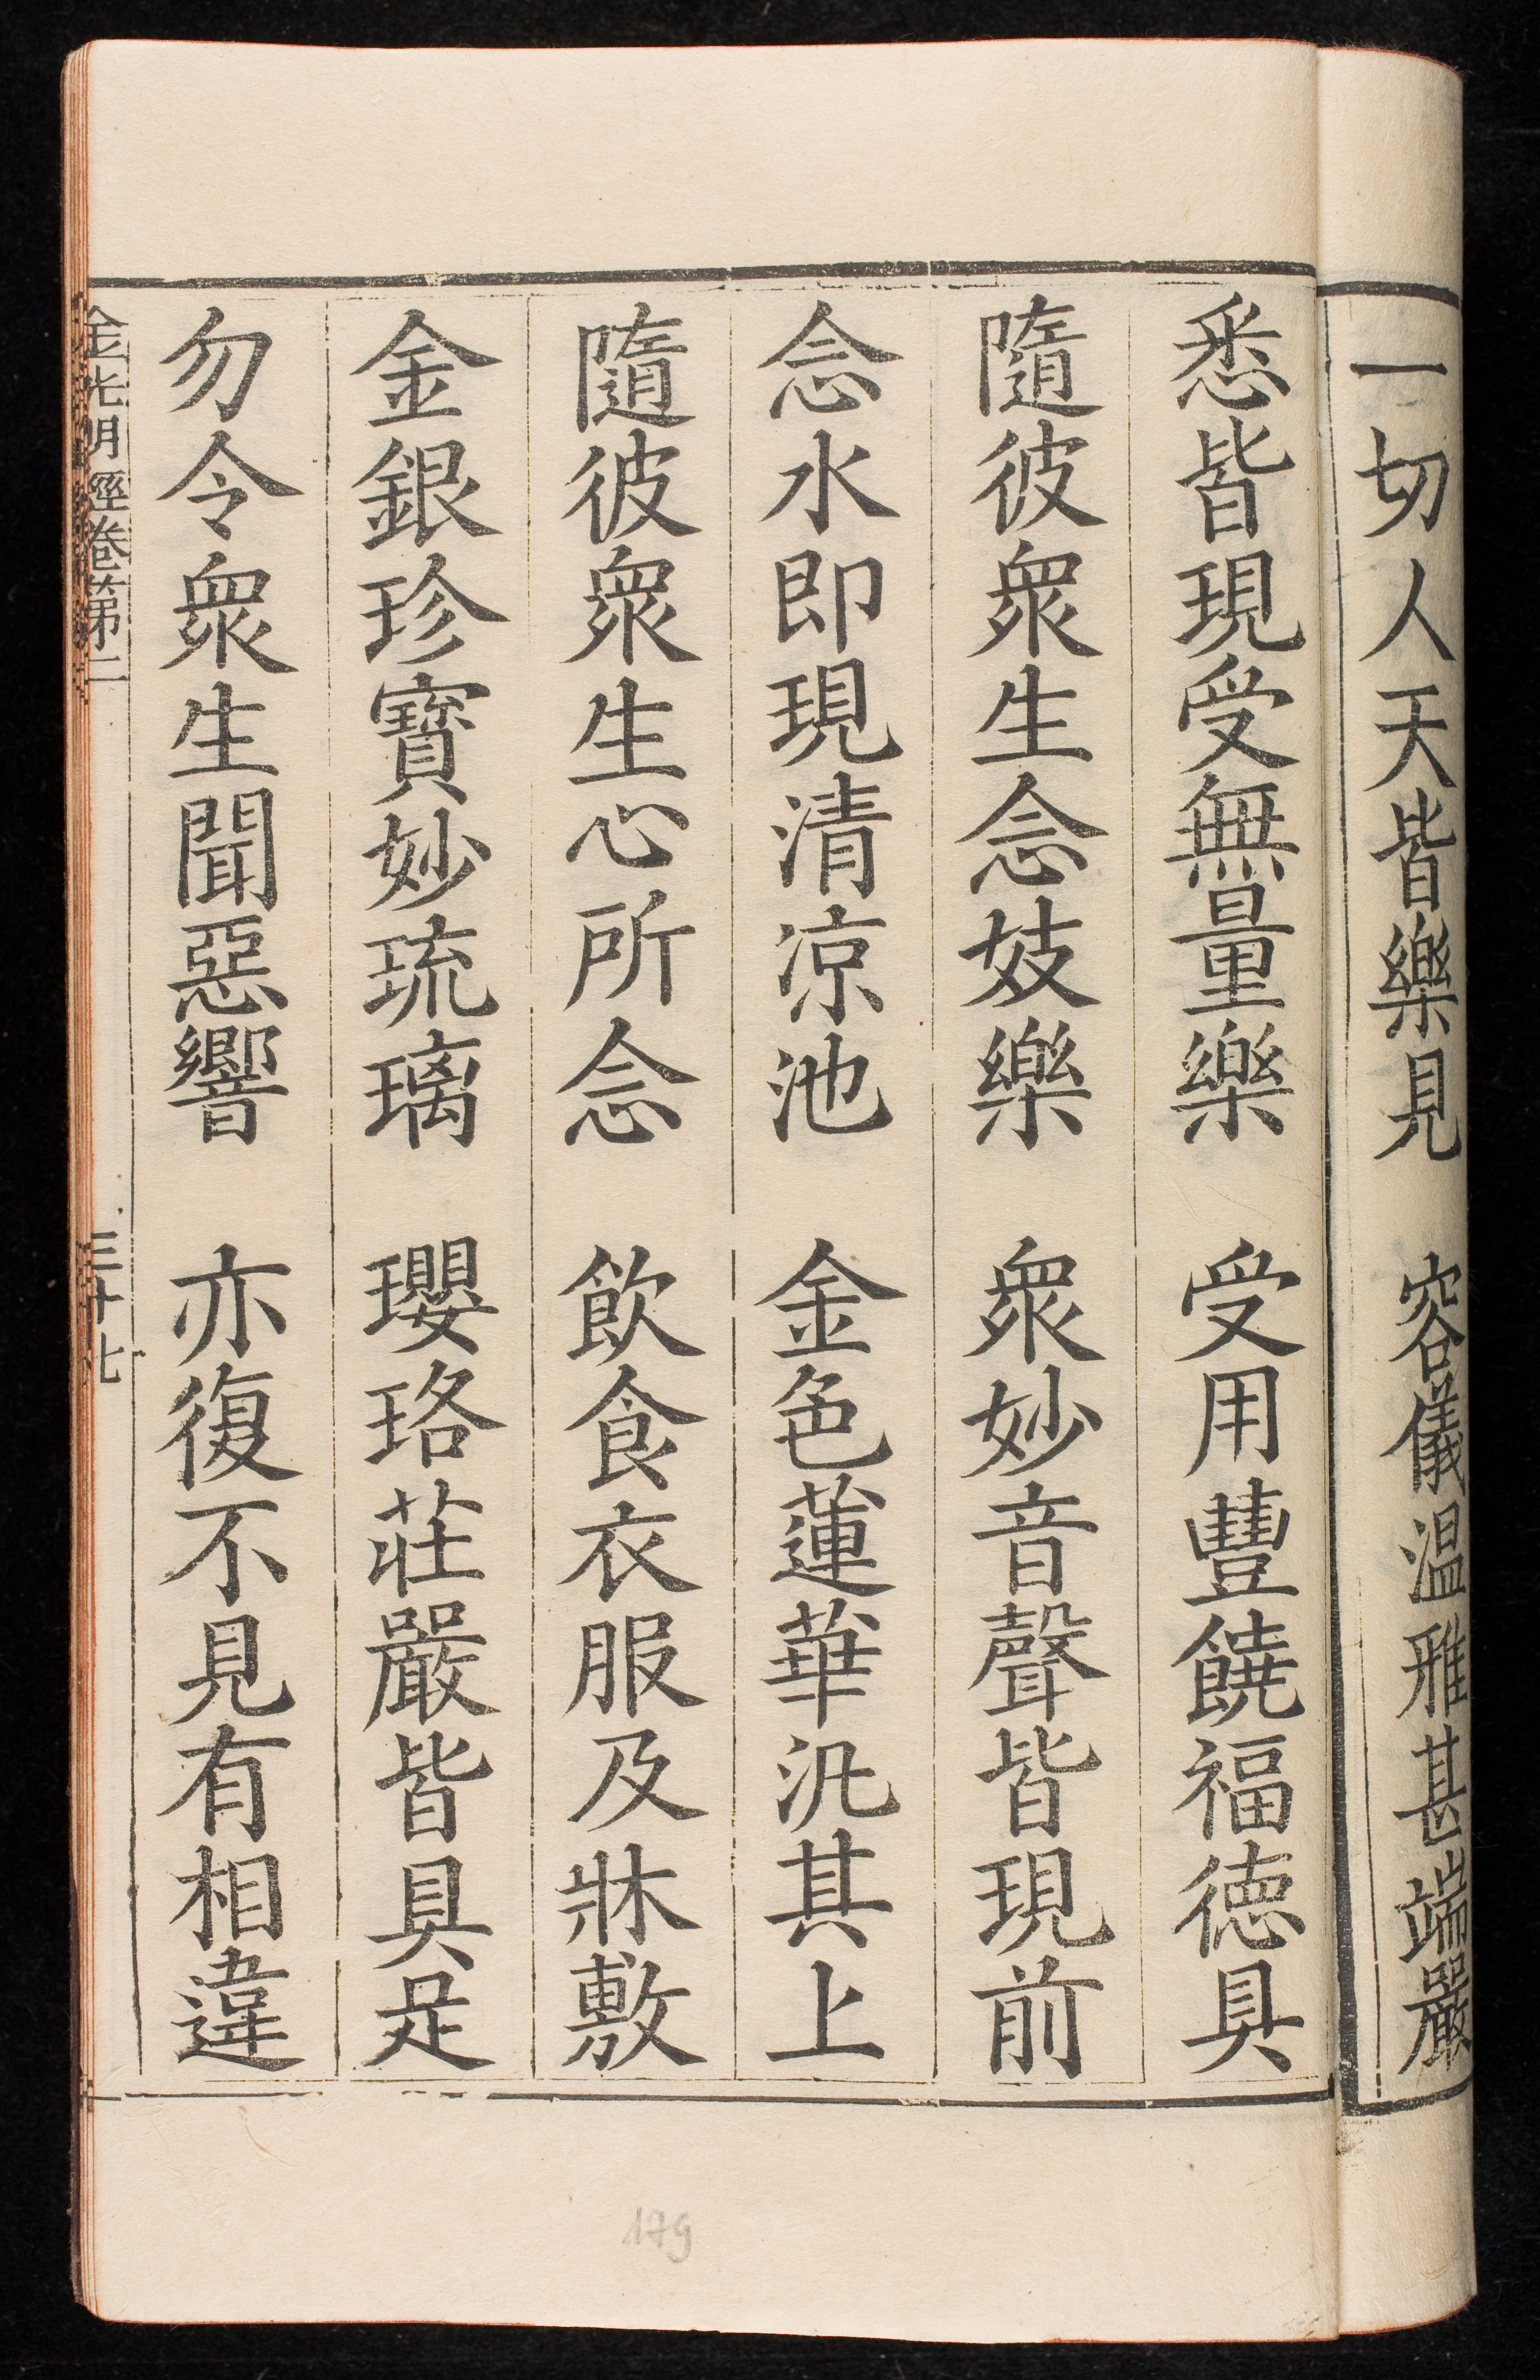 一切人天皆樂見　容儀温雅甚端嚴
悉皆現受無量樂　受用豐饒福德具
隨彼衆生念妓樂　衆妙音聲皆現前
念水即現清涼池　金色蓮華汎其上
隨彼衆生心所念　飲食衣服及牀敷
金銀珍寶妙琉璃　瓔珞莊嚴皆具足
勿令衆生聞惡響　亦復不見有相違
金光明經卷第二　三十七
179